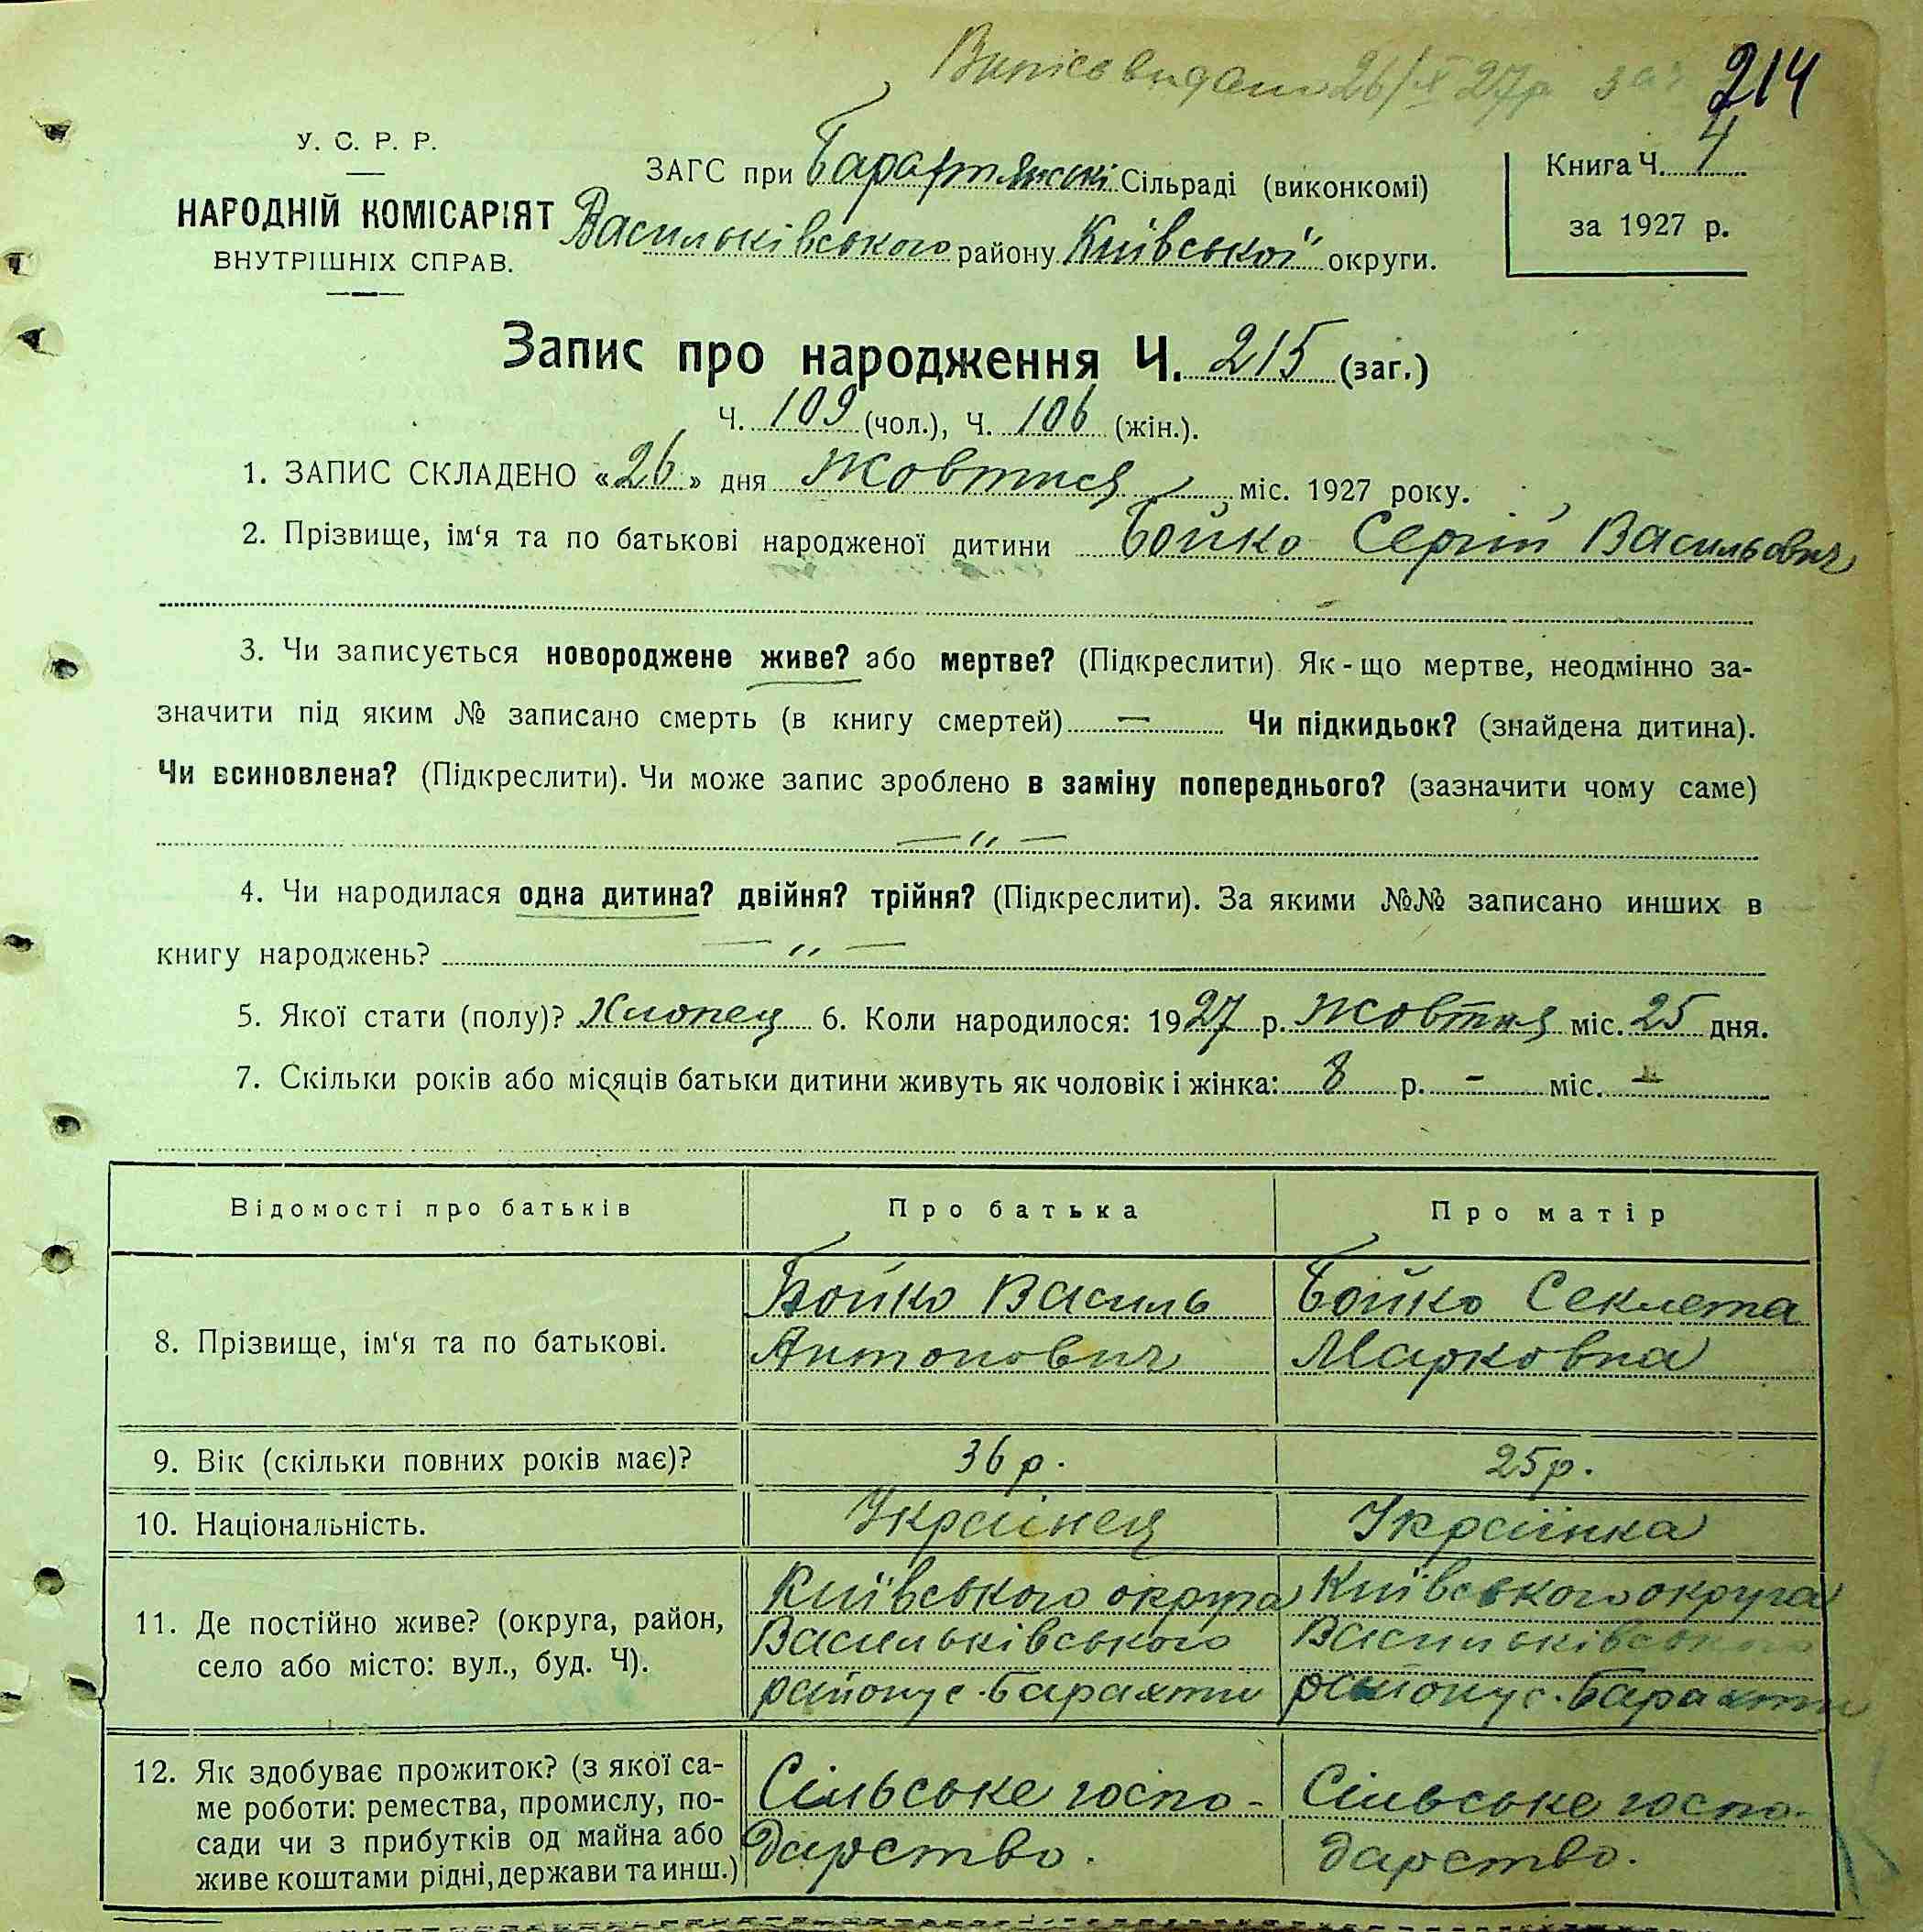 Випісь видано 26/X 27р за 
214
У. С. Р. Р.
НАРОДНІЙ КОМІСАРІЯТ
ВНУТРІШНІХ СПРАВ.
ЗАГС при Барахтянські Сільраді (виконкомі)
Васильківського району Київської округи.
Книга Ч. 4
за 1927 р.
Запис про народження Ч. 215 (заг.)
Ч. 109 (чол.), Ч. 106 (жін.).
1. ЗАПИС СКЛАДЕНО «26» дня Жовтня міс. 1927 року.
2. Прізвище, ім‘я та по батькові народженої дитини Бойко Сергій Васильович
3. Чи записується новороджене живе? або мертве? (Підкреслити) Як-що мертве, неодмінно за-
значити під яким № записано смерть (в книгу смертей) — Чи підкидьок? (знайдена дитина).
Чи всиновлена? (Підкреслити). Чи може запис зроблено в заміну попереднього? (зазначити чому саме)
— „ —
4. Чи народилася одна дитина? двійня? трійня? (Підкреслити). За якими №№ записано инших в
книгу народжень? — „ —
5. Якої стати (полу)? Хлопець 6. Коли народилося: 1927 р. Жовтня міс. 25 дня.
7. Скільки років або місяців батьки дитини живуть як чоловік і жінка: 8 р. - міс. -
Відомості про батьків
Про батька
Про матір
8. Прізвище, ім‘я та по батькові.
Бойко Василь
Антонович
Бойко Секлета
Марковна
9. Вік (скільки повних років має)?
36 р.
25 р.
10. Національність.
Українец
Українка
11. Де постійно живе? (округа, район,
село або місто: вул., буд. Ч).
Київського округа
Васильківського
району с. Барахти
Київського округа
Васильківського
району с. Барахти
12. Як здобуває прожиток? (з якої са-
ме роботи: ремества, промислу, по-
сади чи з прибутків од майна або
живе коштами рідні, держави та инш.)
Сільське госпо-
дарство.
Сільське госпо-
дарство.